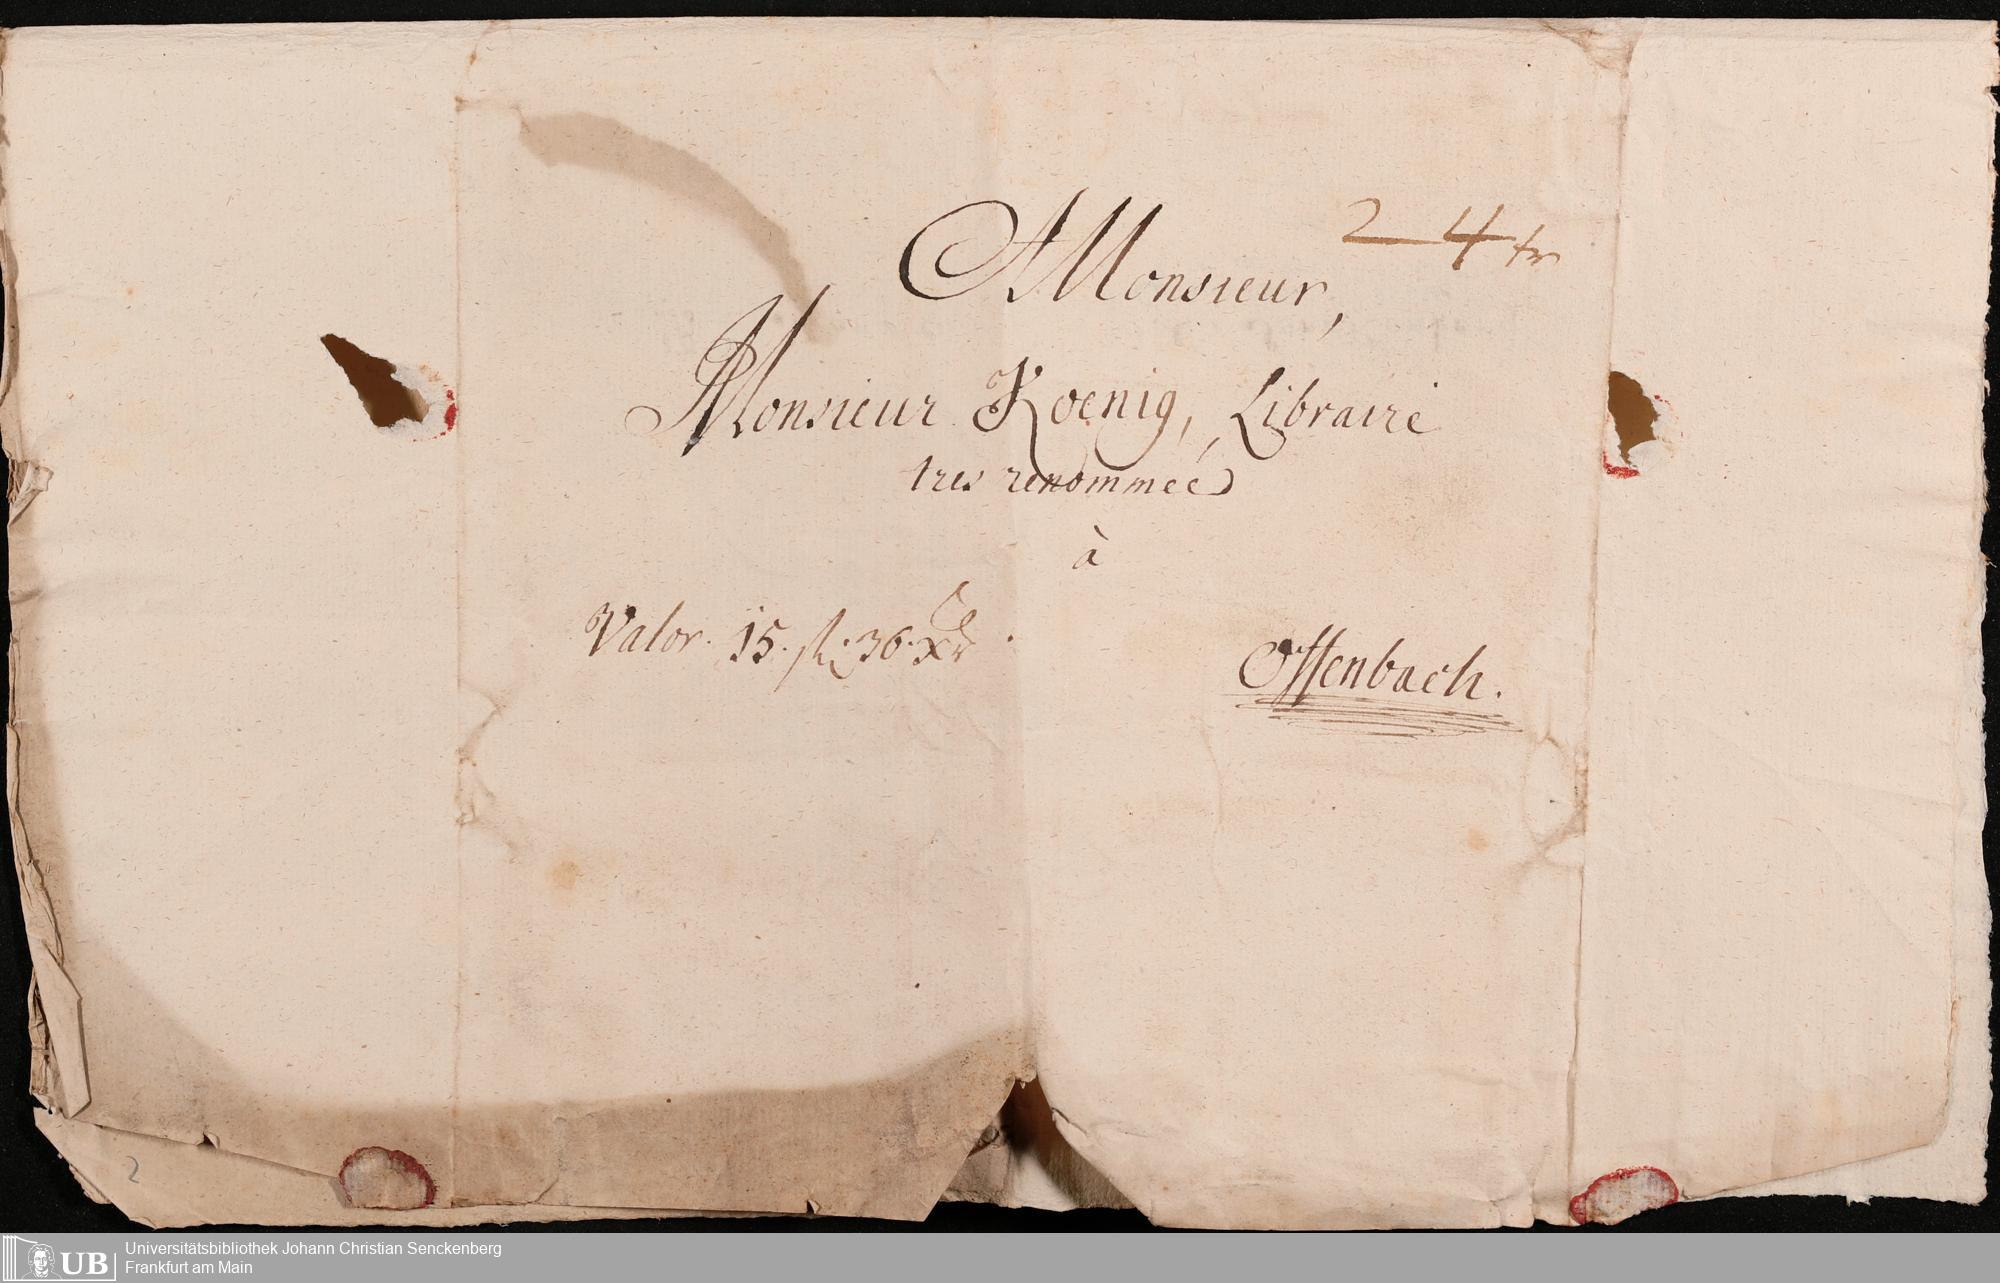 A Monsieur,
24 kr
Monsieur Koenig, Libraire
tres renommée
à
Valor. 15. fl. 36. Xr.
Offenbach.
2
UB
Universitätsbibliothek Johann Christian Senckenberg
Frankfurt am Main